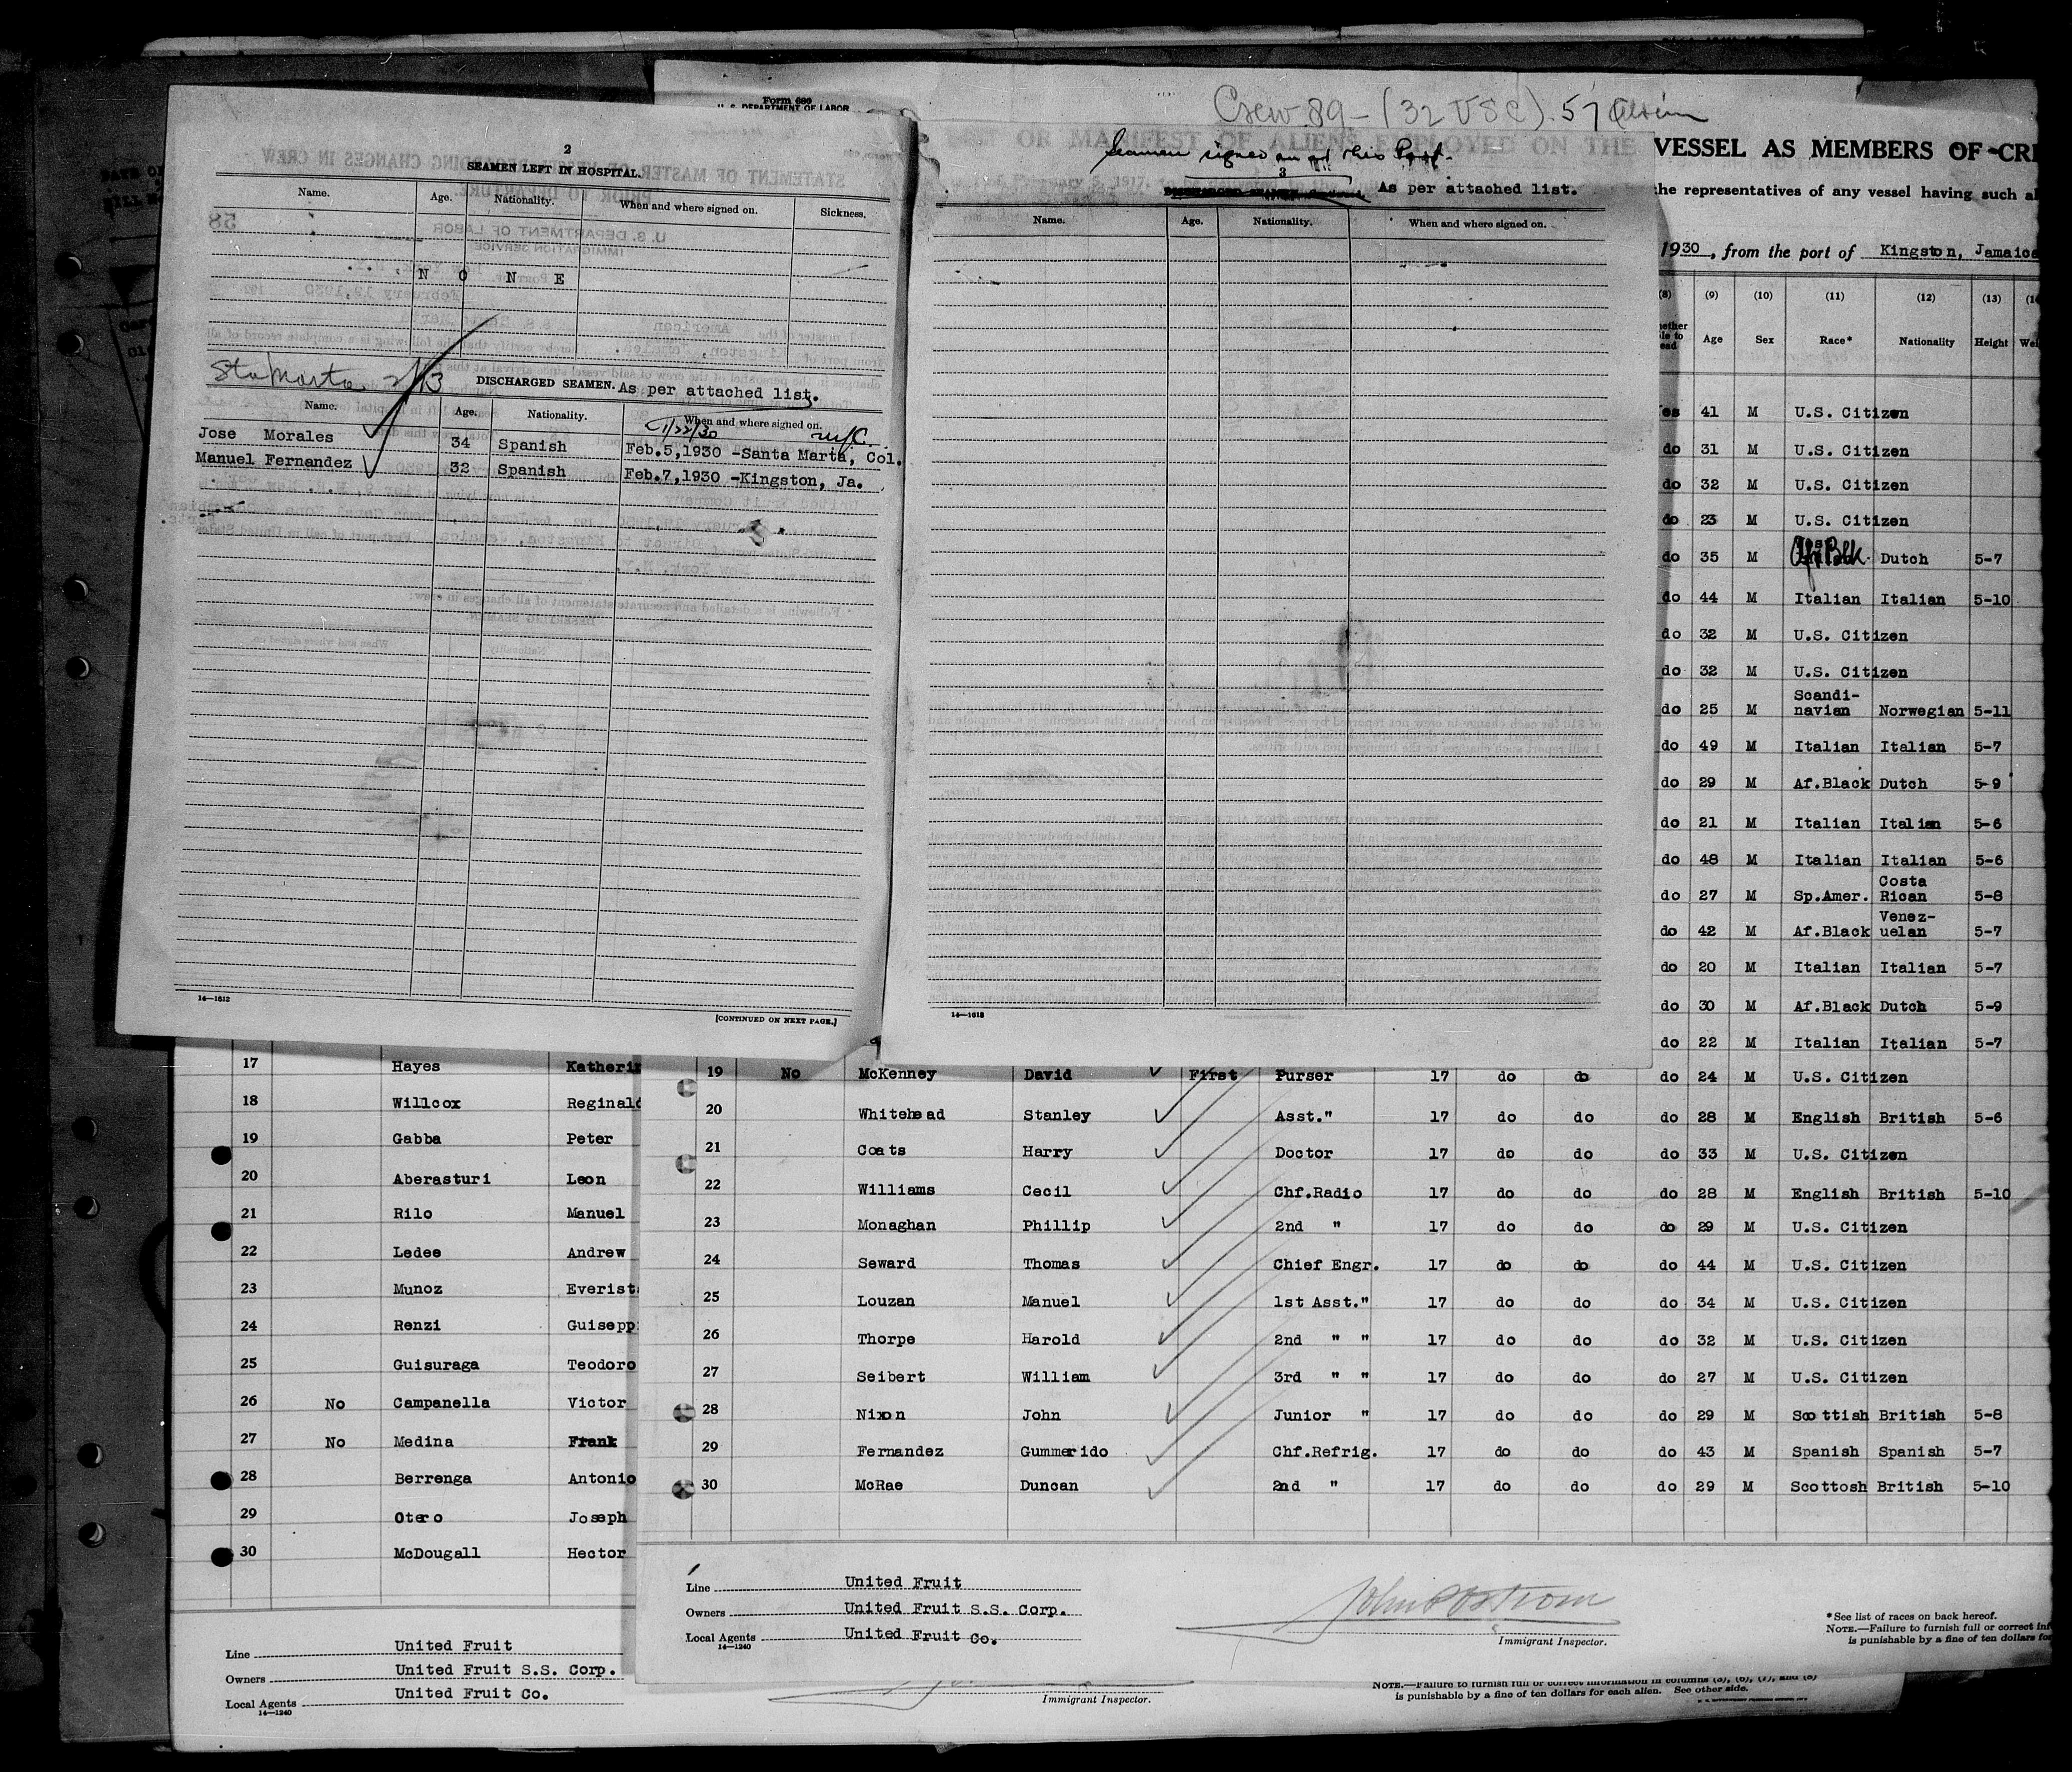 Form 680
U. S. DEPARTMENT OF LABOR
2
SEAMEN LEFT IN HOSPITAL.
Name. Age. Nationality. When and where signed on. Sickness.
N O N E
Sta Marta 2/13 DISCHARGED SEAMEN. As per attached list.
Name. Age. Nationality. When and where signed on.
1/22/30 NYC.
Jose Morales 34 Spanish Feb.5,1930 -Santa Marta, Col.
Manuel Fernandez 32 Spanish Feb.7,1930 -Kingston, Ja.
14—1612
[CONTINUED ON NEXT PAGE.]
Crew 89 - (32 USC) 57 Alien
Seamen signed on at this Port.
3
As per attached list.
Name. Age. Nationality. When and where signed on.
14—1612
OR MANIFEST OF ALIENS EMPLOYED ON THE VESSEL AS MEMBERS OF CRE
the representatives of any vessel having such al
1930, from the port of Kingston, Jamaica
(8) (9) (10) (11) (12) (13)
Age Sex Race* Nationality Height
41 M U.S. Citizen
do 31 M U.S. Citizen
do 32 M U.S. Citizen
do 23 M U.S. Citizen
do 35 M Af. Blk. Dutch 5-7
do 44 M Italian Italian 5-10
do 32 M U.S. Citizen
do 32 M U.S. Citizen
do 25 M Scandi-
navian Norwegian 5-11
do 49 M Italian Italian 5-7
do 29 M Af.Black Dutch 5-9
do 21 M Italian Italian 5-6
do 48 M Italian Italian 5-6
do 27 M Sp.Amer. Costa
Rican 5-8
do 42 M Af.Black Venez-
uelan 5-7
do 20 M Italian Italian 5-7
do 30 M Af.Black Dutch 5-9
do 22 M Italian Italian 5-7
19 No McKenney David First Purser 17 do do do 24 M U.S. Citizen
20 Whitehead Stanley Asst." 17 do do do 28 M English British 5-6
21 Coats Harry Doctor 17 do do do 33 M U.S. Citizen
22 Williams Cecil Chf.Radio 17 do do do 28 M English British 5-10
23 Monaghan Phillip 2nd " 17 do do do 29 M U.S. Citizen
24 Seward Thomas Chief Engr. 17 do do do 44 M U.S. Citizen
25 Louzan Manuel 1st Asst." 17 do do do 34 M U.S. Citizen
26 Thorpe Harold 2nd " " 17 do do do 32 M U.S. Citizen
27 Seibert William 3rd " " 17 do do do 27 M U.S. Citizen
28 Nixon John Junior " 17 do do do 29 M Scottish British 5-8
29 Fernandez Gummerido Chf.Refrig. 17 do do do 43 M Spanish Spanish 5-7
30 McRae Duncan 2nd " 17 do do do 29 M Scottosh British 5-10
Line United Fruit
Owners United Fruit S.S. Corp.
Local Agents United Fruit Co.
14—1240
John Ostrom
Immigrant Inspector.
*See list of races on back hereof.
NOTE.—Failure to furnish full or correct inf
is punishable by a fine of ten dollars for
17 Hayes Katherin
18 Willcox Reginald
19 Gabba Peter
20 Aberasturi Leon
21 Rilo Manuel
22 Ledee Andrew
23 Munoz Everist
24 Renzi Guisepp
25 Guisuraga Teodoro
26 No Campanella Victor
27 No Medina Frank
28 Berrenga Antonio
29 Otero Joseph
30 McDougall Hector
Line United Fruit
Owners United Fruit S.S. Corp.
Local Agents United Fruit Co.
14—1240
Immigrant Inspector.
NOTE.—Failure to furnish full or correct information in columns (3), (6), (7), and (8)
is punishable by a fine of ten dollars for each alien. See other side.